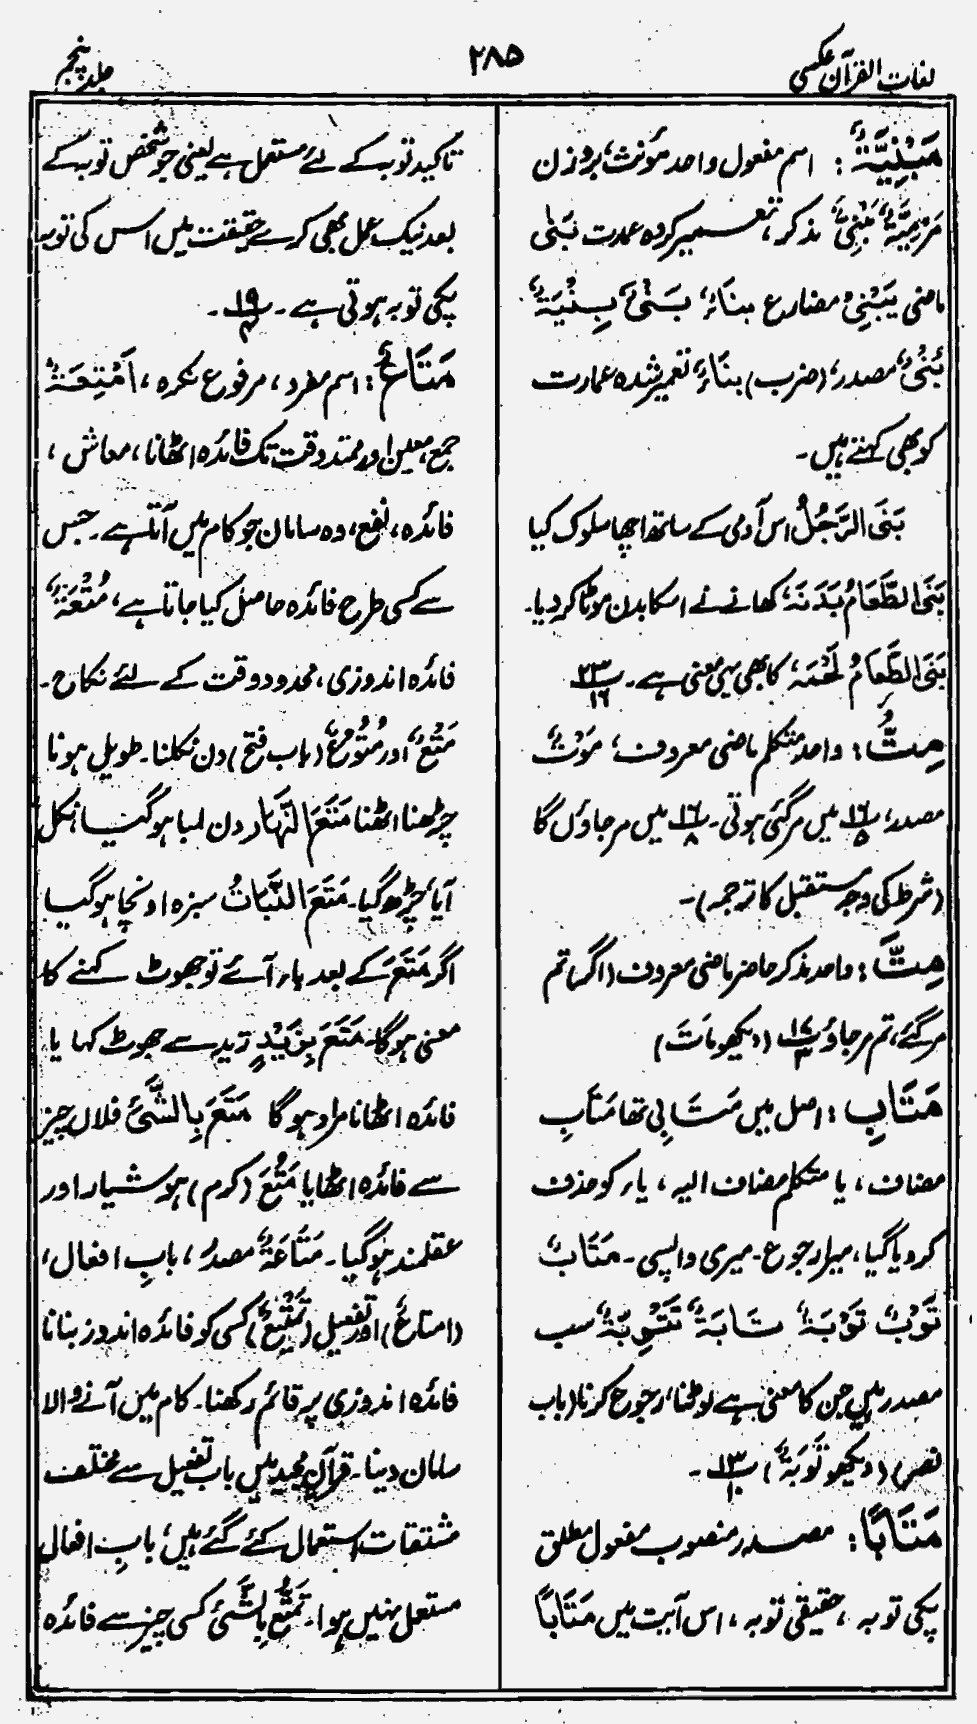 لغات القرآن عکسی
۲۸۵
جلد پنجم
مَبْنِیَّۃٌ: اسم مفعول واحد مؤنث، بروزن
مَرْمِیَّۃٌ، مَبْنِیٌّ مذکر، تعمیر کردہ عمارت بَنٰی
ماضی یَبْنِیْ مضارع بناءٌ، بَنْیٌ، بِنْیَۃٌ،
بُنْیٌ، مصدر، (ضرب) بناءٌ، تعمیر شدہ عمارت
کو بھی کہتے ہیں۔
بَنَی الرَّجُلُ اس آدمی کے ساتھ اچھا سلوک کیا
بَنَی الطَّعَامُ بَدَنَہٗ، کھانے نے اسکا بدن موٹا کر دیا۔
بَنَی الطَّعَامُ لَحْمَہٗ، کا بھی یہی معنی ہے۔ پ ۲۳/۱۶
مِتُّ: واحد متکلم ماضی معروف، مَوْتٌ
مصدر، پ ۱۶/۵ میں مر گئی ہوتی۔ پ ۱۶/۸ میں مر جاؤں گا
(شرط کی وجہ مستقبل کا ترجمہ)۔
مِتَّ: واحد مذکر حاضر ماضی معروف (اگر) تم
مر گئے، تم مر جاؤ پ ۱۷/۳ (دیکھو مَاتَ)
مَتَابِ: اصل میں مَتَابِی تھا مَتَابِ
مضاف، یا متکلم مضاف الیہ، یاء کو حذف
کر دیا گیا، میرا رجوع۔ میری واپسی۔ مَتَابٌ،
تَوْبٌ، تَوْبَۃٌ، تَابَۃٌ، تَتْوِبَۃٌ، سب
مصدر ہیں جن کا معنی ہے لوٹنا، رجوع کرنا (باب
نصر) (دیکھو تَوْبَۃٌ) پ ۱۳/۱۰۔
مَتَابًا: مصدر منصوب مفعول مطلق
پکی توبہ، حقیقی توبہ، اس آیت میں مَتَابًا
تاکید توبہ کے لئے مستعمل ہے یعنی جو شخص توبہ کے
بعد نیک عمل بھی کرے حقیقت میں اس کی توبہ
پکی توبہ ہوتی ہے۔ پ ۱۹/۴۔
مَتَاعٌ: اسم مفرد، مرفوع نکرہ، اَمْتِعَۃٌ
جمع، معین اور ممتد وقت تک فائدہ اٹھانا، معاش،
فائدہ، نفع، وہ سامان جو کام میں آتا ہے۔ جس
سے کسی طرح فائدہ حاصل کیا جاتا ہے، مُتْعَۃٌ،
فائدہ اندوزی، محدود وقت کے لئے نکاح۔
مَتْعٌ، اور مُتُوْعٌ، (باب فتح) دن نکلنا۔ طویل ہونا
چڑھنا اٹھنا مَتَعَ النَّہَار دن لمبا ہو گیا نکل
آیا، چڑھ گیا۔ مَتَعَ النَّبَاتُ سبزہ اونچا ہو گیا
اگر مَتَعَ کے بعد باء آئے تو جھوٹ کہنے کا
معنی ہو گا۔ مَتَعَ بِزَیْدٍ زید سے جھوٹ کہا یا
فائدہ اٹھانا مراد ہو گا مَتَعَ بِالشَّیْئِ فلاں چیز
سے فائدہ اٹھایا مَتُعَ (کرم) ہوشیار اور
عقلمند ہو گیا۔ مَتَاعَۃٌ، مصدر، بابِ افعال،
(امتاعٌ) اور تفعیل (تَمْتِیْعٌ) کسی کو فائدہ اندوز بنانا
فائدہ اندوزی پر قائم رکھنا۔ کام میں آنے والا
سامان دینا۔ قرآن مجید میں باب تفعیل سے مختلف
مشتقات استعمال کئے گئے ہیں، بابِ افعال
مستعمل نہیں ہوا۔ تَمَتُّعٌ بِالشَّیْئِ کسی چیز سے فائدہ